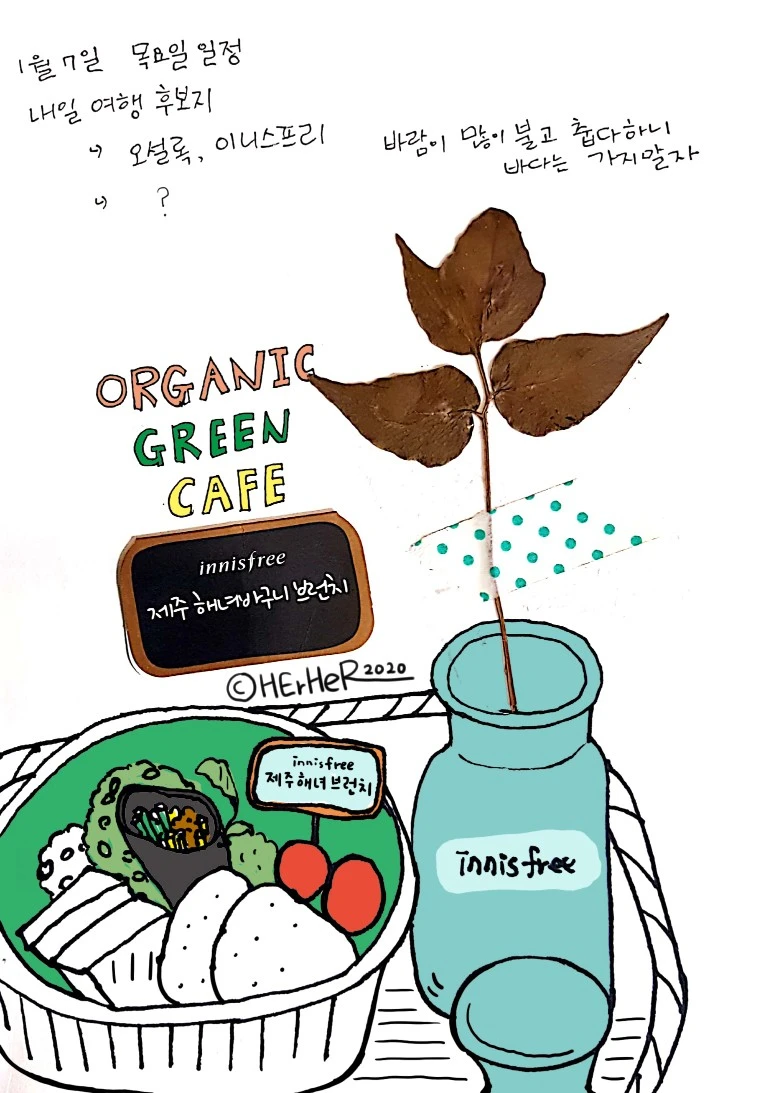 1월 7일 목요일 일정
내일 여행 후보지
↳ 오설록, 이니스프리
↳ ?
바람이 많이 불고 춥다하니
바다는 가지말자
ORGANIC
GREEN
CAFE
innisfree
제주 해녀바구니 브런치
©HErHeR 2020
innisfree
제주 해녀 브런치
innisfree